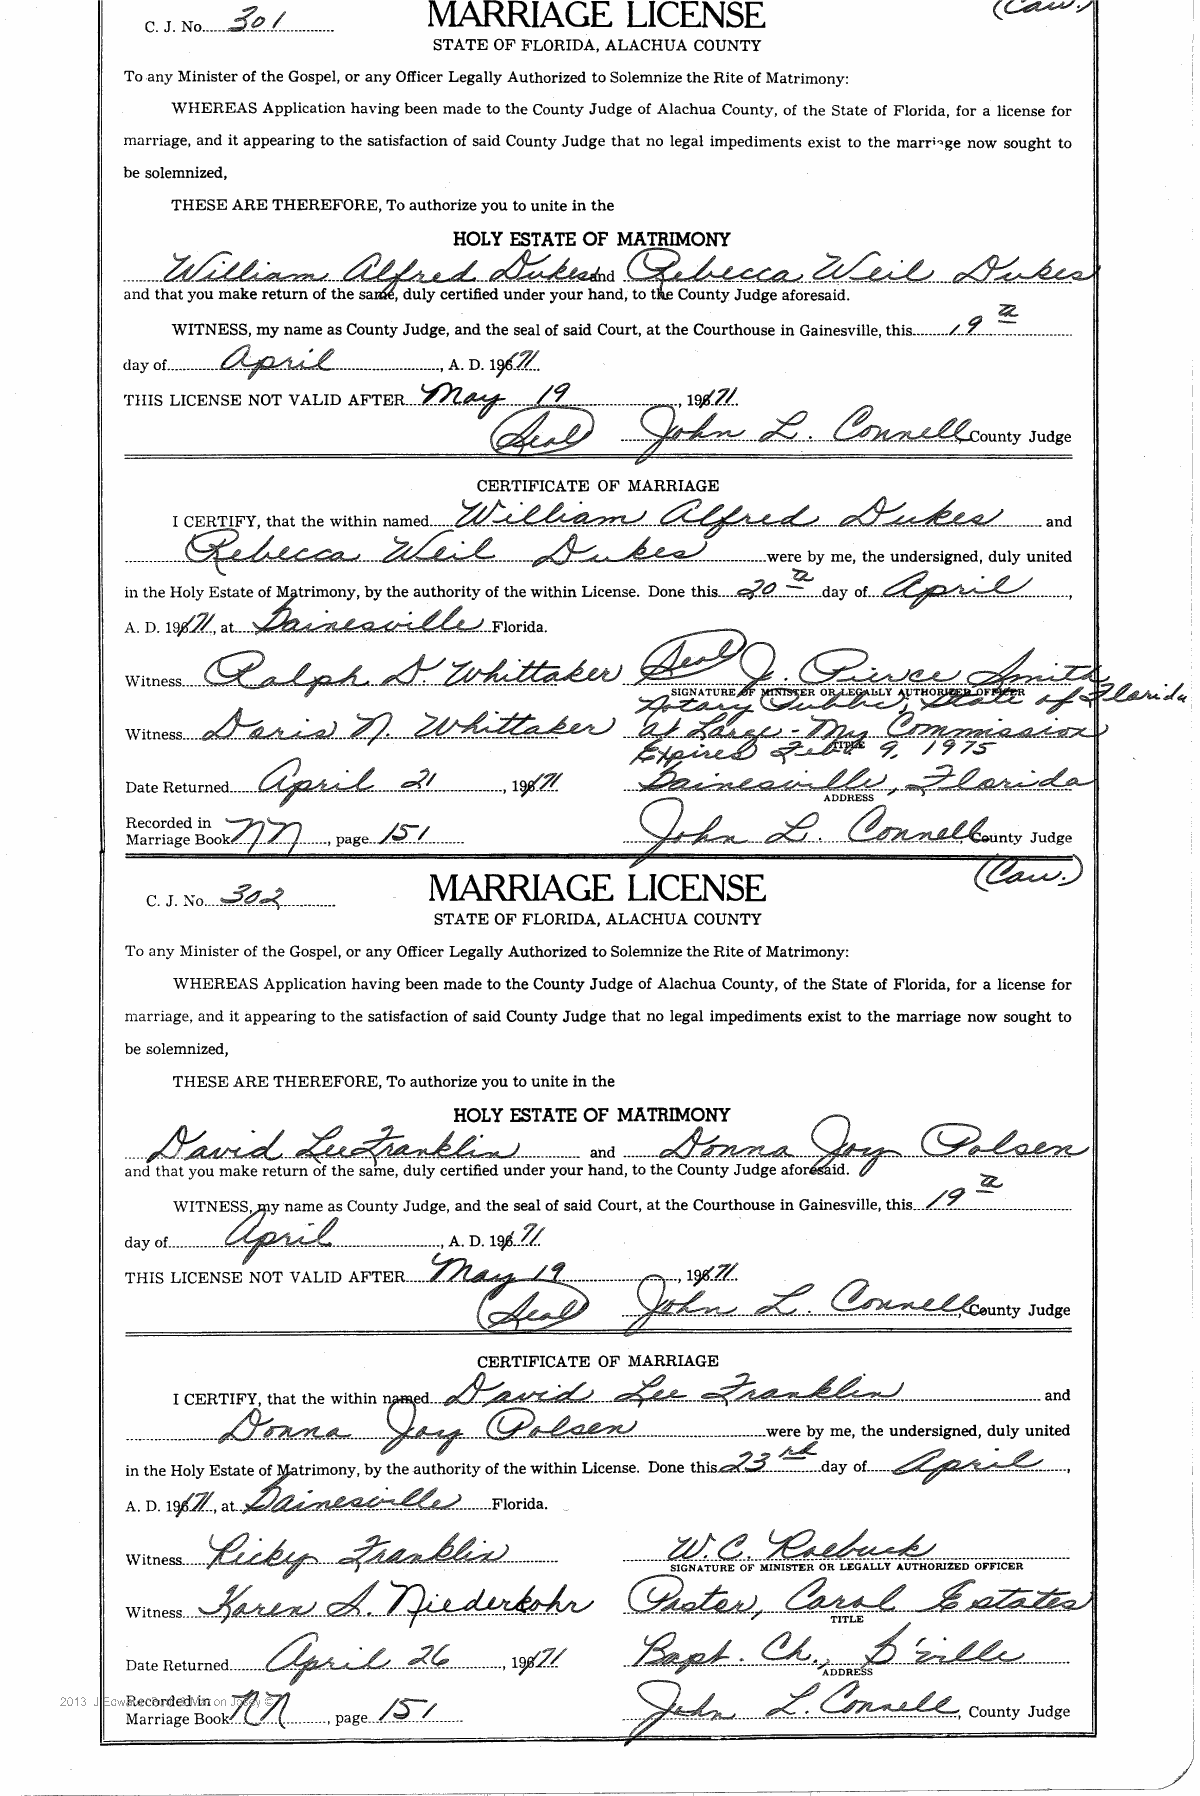 C. J. No. 301 MARRIAGE LICENSE (Caw.)
STATE OF FLORIDA, ALACHUA COUNTY
To any Minister of the Gospel, or any Officer Legally Authorized to Solemnize the Rite of Matrimony:
WHEREAS Application having been made to the County Judge of Alachua County, of the State of Florida, for a license for
marriage, and it appearing to the satisfaction of said County Judge that no legal impediments exist to the marriage now sought to
be solemnized,
THESE ARE THEREFORE, To authorize you to unite in the
HOLY ESTATE OF MATRIMONY
William Alfred Dukes and Rebecca Weil Dukes
and that you make return of the same, duly certified under your hand, to the County Judge aforesaid.
WITNESS, my name as County Judge, and the seal of said Court, at the Courthouse in Gainesville, this 19th
day of April, A. D. 1971
THIS LICENSE NOT VALID AFTER May 19, 1971
(Seal) John L. Connell County Judge
CERTIFICATE OF MARRIAGE
I CERTIFY, that the within named William Alfred Dukes and
Rebecca Weil Dukes were by me, the undersigned, duly united
in the Holy Estate of Matrimony, by the authority of the within License. Done this 20th day of April,
A. D. 1971, at Gainesville Florida.
Witness Ralph D. Whittaker (Seal) J. Pierce Smith
SIGNATURE OF MINISTER OR LEGALLY AUTHORIZED OFFICER
Notary Public, State of Florida
Witness Doris N. Whittaker at Large - My Commission
Expires Feb. 9, 1975
TITLE
Date Returned April 21, 1971 Gainesville, Florida
ADDRESS
Recorded in
Marriage Book NN, page 151 John L. Connell, County Judge
C. J. No. 302 MARRIAGE LICENSE (Caw.)
STATE OF FLORIDA, ALACHUA COUNTY
To any Minister of the Gospel, or any Officer Legally Authorized to Solemnize the Rite of Matrimony:
WHEREAS Application having been made to the County Judge of Alachua County, of the State of Florida, for a license for
marriage, and it appearing to the satisfaction of said County Judge that no legal impediments exist to the marriage now sought to
be solemnized,
THESE ARE THEREFORE, To authorize you to unite in the
HOLY ESTATE OF MATRIMONY
David Lee Franklin and Donna Joy Polsen
and that you make return of the same, duly certified under your hand, to the County Judge aforesaid.
WITNESS, my name as County Judge, and the seal of said Court, at the Courthouse in Gainesville, this 19th
day of April, A. D. 1971
THIS LICENSE NOT VALID AFTER May 19, 1971
(Seal) John L. Connell, County Judge
CERTIFICATE OF MARRIAGE
I CERTIFY, that the within named David Lee Franklin and
Donna Joy Polsen were by me, the undersigned, duly united
in the Holy Estate of Matrimony, by the authority of the within License. Done this 23rd day of April,
A. D. 1971, at Gainesville Florida.
Witness Ricky Franklin W. C. Roebuck
SIGNATURE OF MINISTER OR LEGALLY AUTHORIZED OFFICER
Witness Karen S. Niederkohr Pastor, Carol Estates
TITLE
Date Returned April 26, 1971 Bapt. Ch., G'ville
ADDRESS
2013 Recorded in
Marriage Book NN, page 151 John L. Connell, County Judge